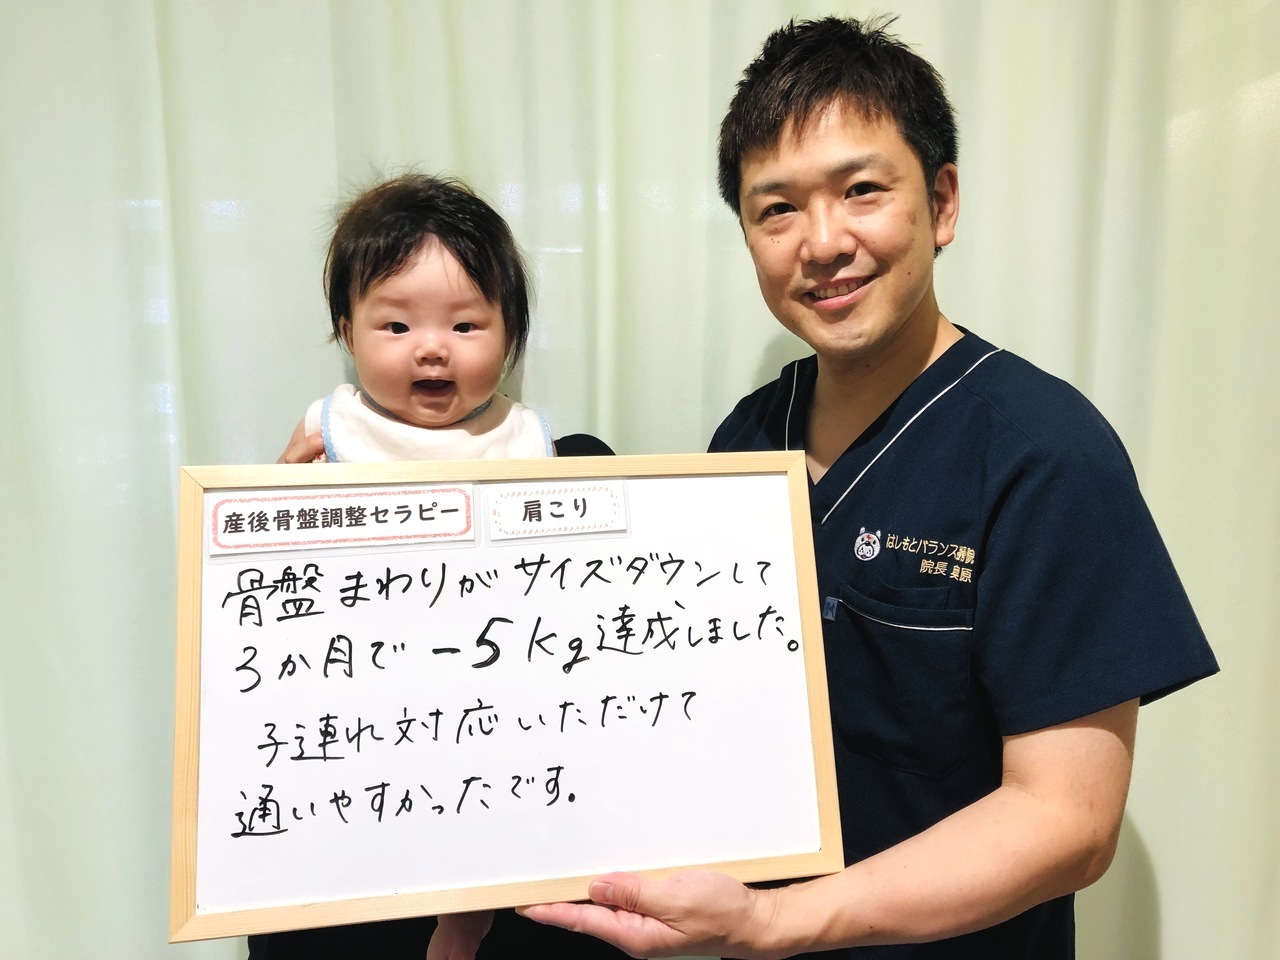 産後骨盤調整セラピー
肩こり
骨盤まわりがサイズダウンして
3か月で-5kg達成しました。
子連れ対応いただけて
通いやすかったです。
はしもとバランス整骨院
院長 奥原